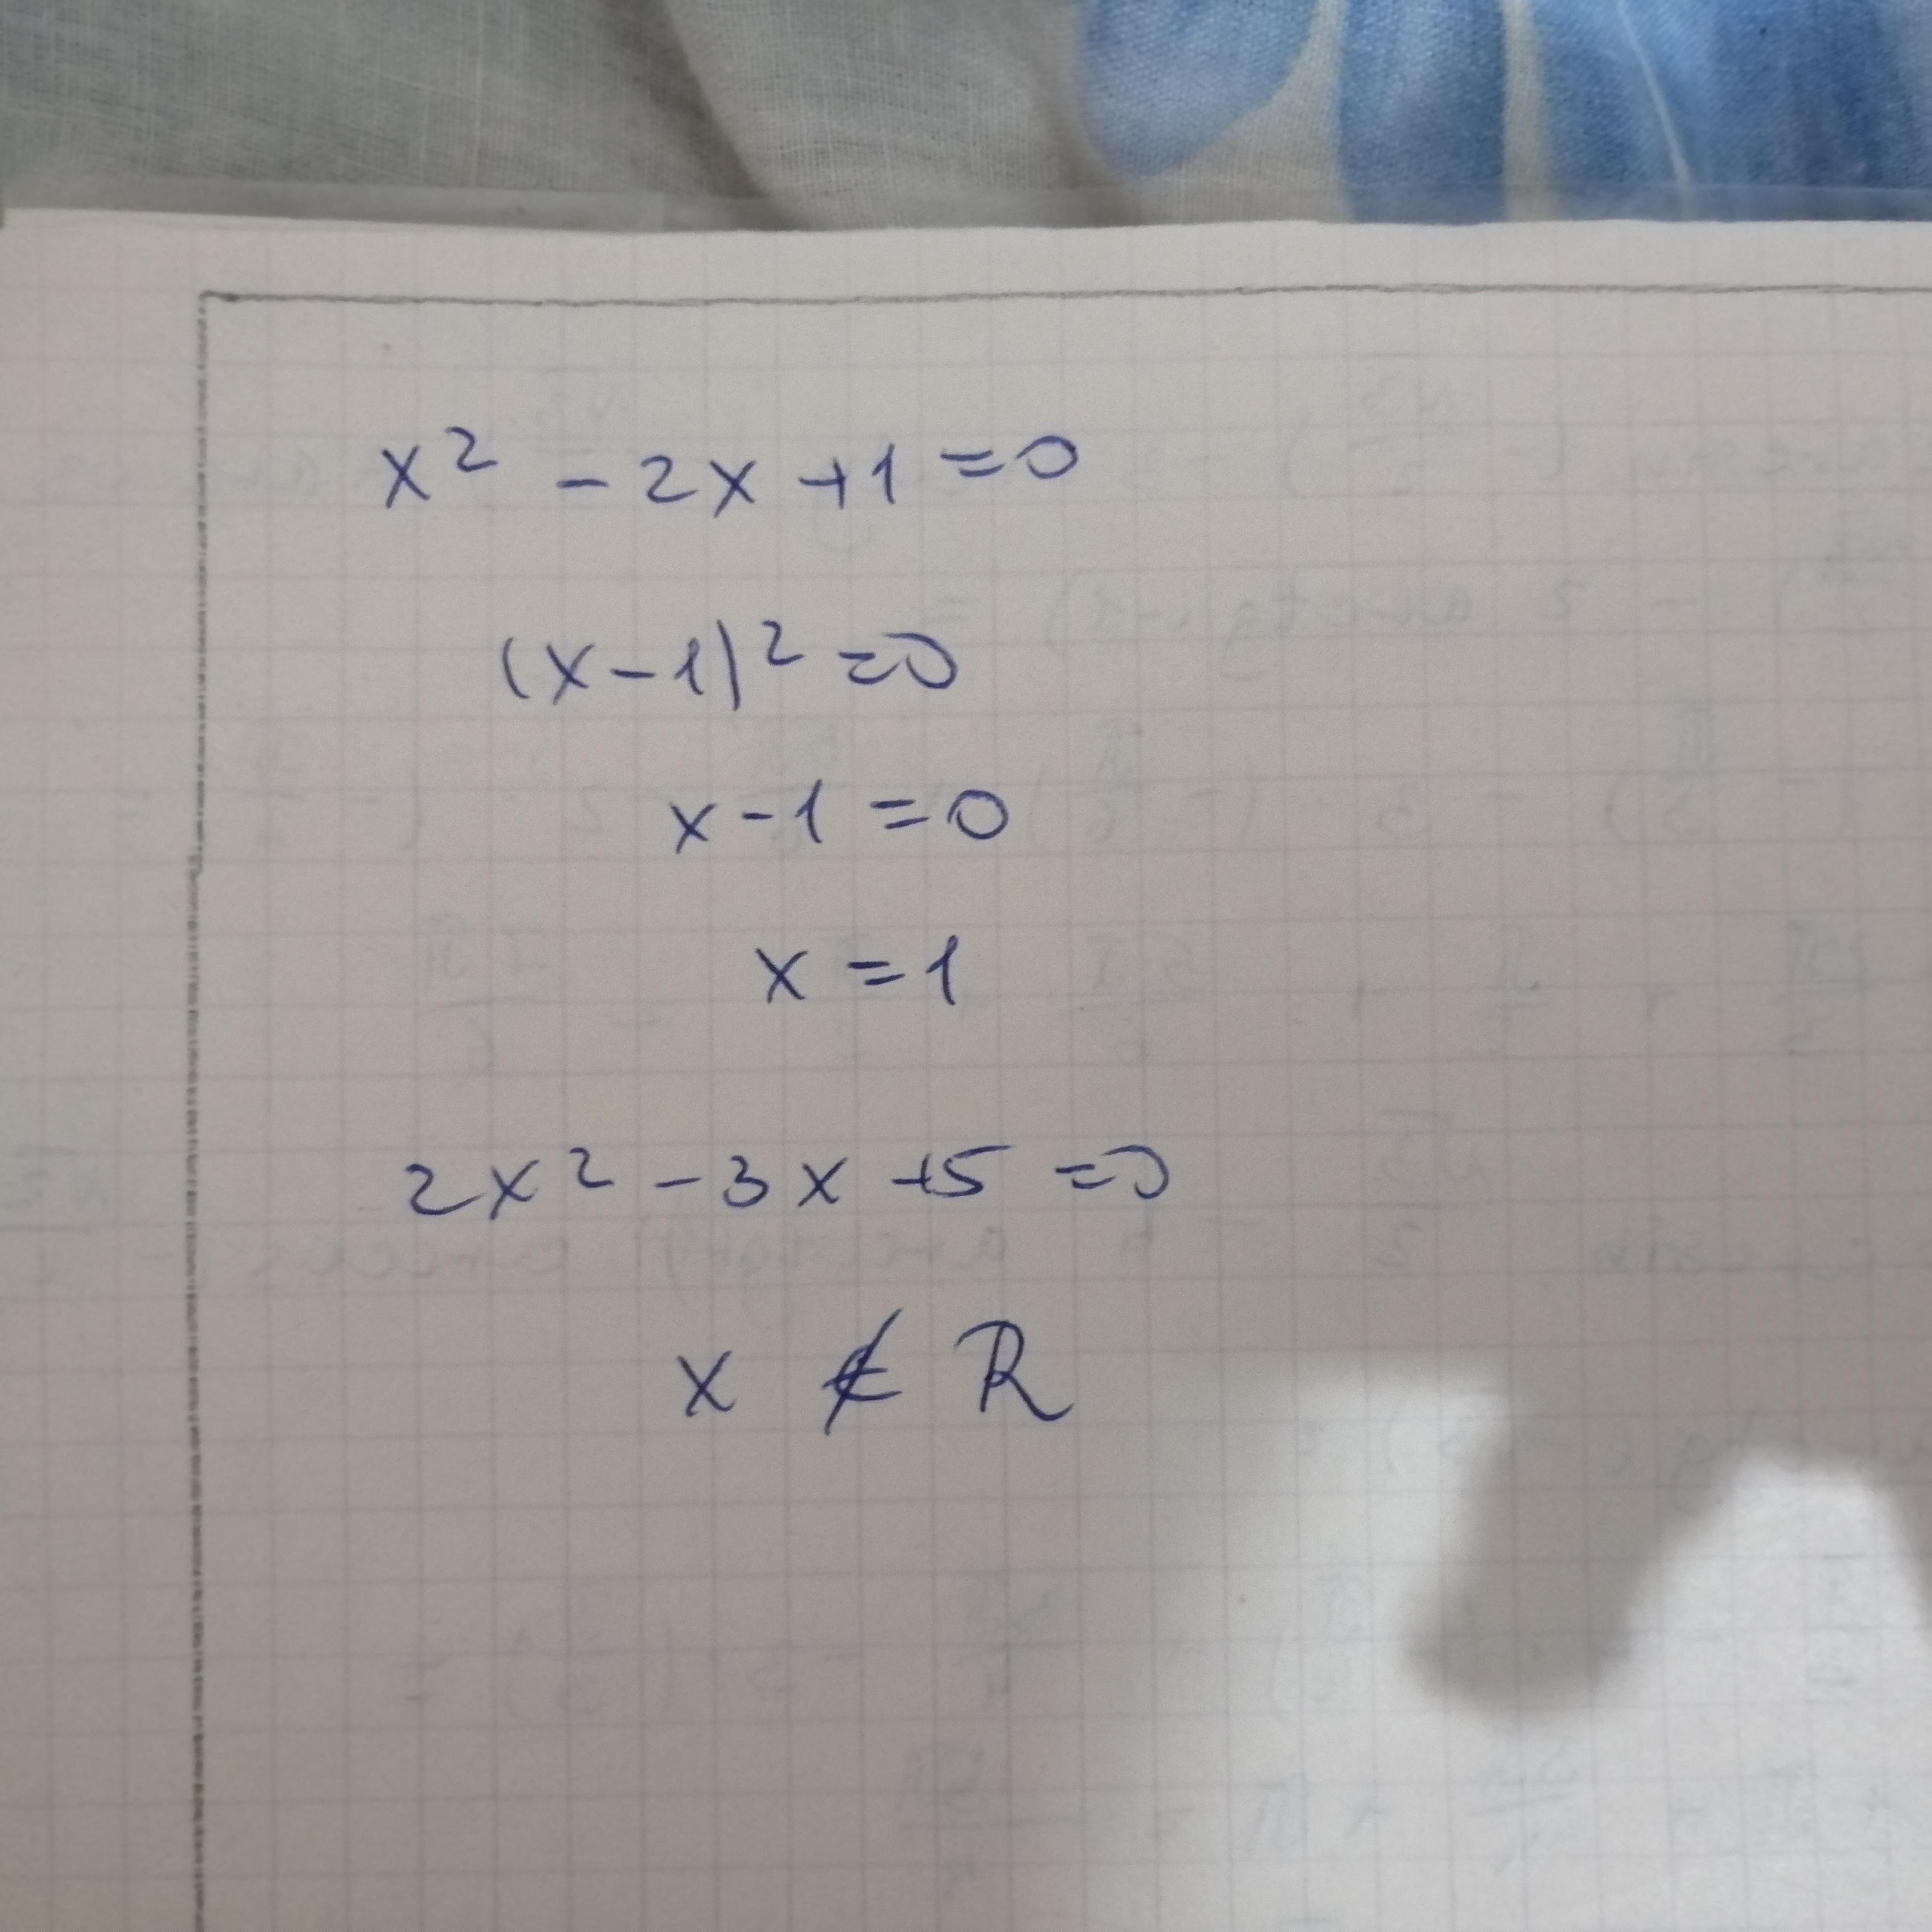 x² - 2x + 1 = 0
(x - 1)² = 0
x - 1 = 0
x = 1
2x² - 3x + 5 = 0
x ∉ R